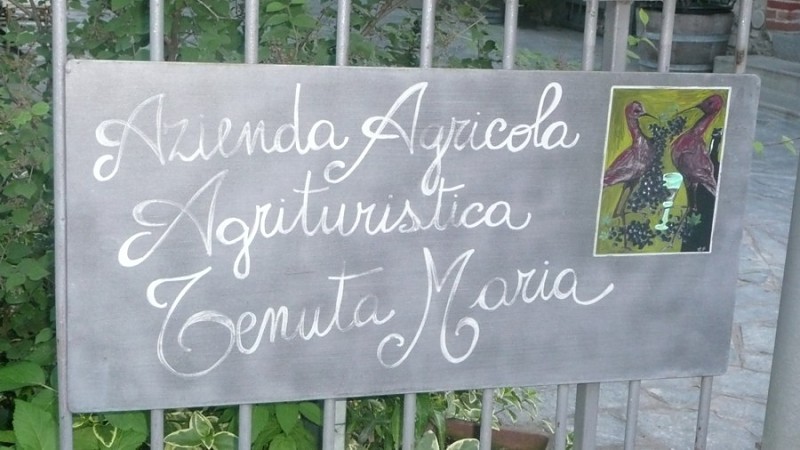 Azienda Agricola
Agrituristica
Tenuta Maria